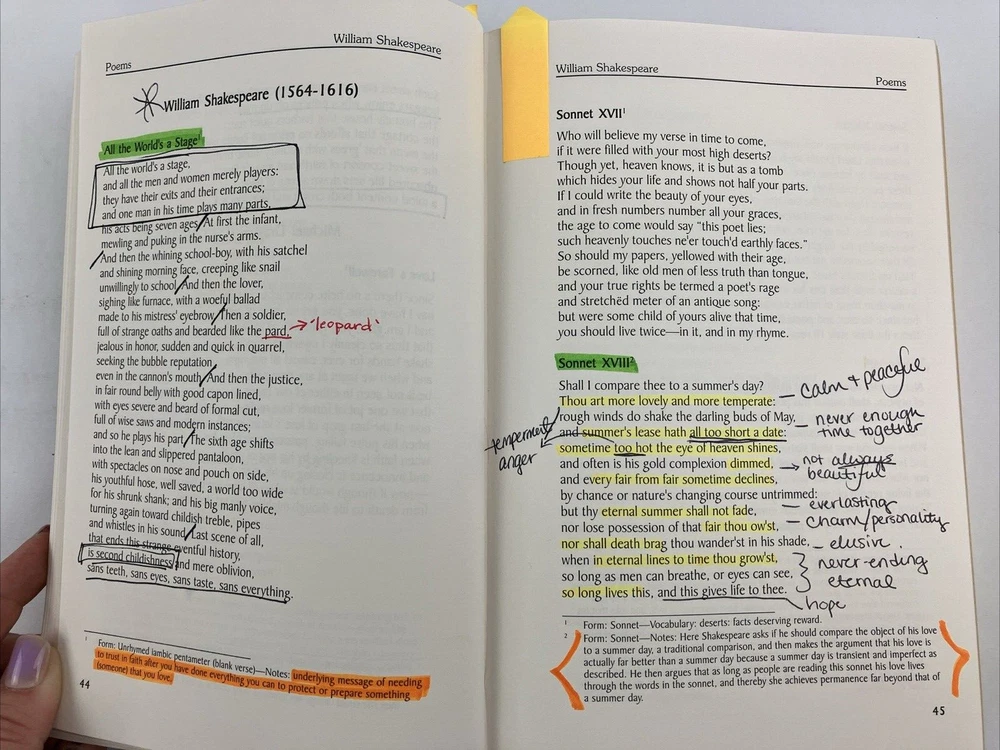 Poems
William Shakespeare
William Shakespeare (1564-1616)
All the World's a Stage¹
All the world's a stage,
and all the men and women merely players:
they have their exits and their entrances;
and one man in his time plays many parts,
his acts being seven ages. At first the infant,
mewling and puking in the nurse's arms.
And then the whining school-boy, with his satchel
and shining morning face, creeping like snail
unwillingly to school. And then the lover,
sighing like furnace, with a woeful ballad
made to his mistress' eyebrow. Then a soldier,
full of strange oaths and bearded like the pard,
'leopard'
jealous in honor, sudden and quick in quarrel,
seeking the bubble reputation
even in the cannon's mouth. And then the justice,
in fair round belly with good capon lined,
with eyes severe and beard of formal cut,
full of wise saws and modern instances;
and so he plays his part. The sixth age shifts
into the lean and slippered pantaloon,
with spectacles on nose and pouch on side,
his youthful hose, well saved, a world too wide
for his shrunk shank; and his big manly voice,
turning again toward childish treble, pipes
and whistles in his sound. Last scene of all,
that ends this strange eventful history,
is second childishness and mere oblivion,
sans teeth, sans eyes, sans taste, sans everything.
¹ Form: Unrhymed iambic pentameter (blank verse)—Notes: underlying message of needing
to trust in faith after you have done everything you can to protect or prepare something
(someone) that you love.
44
William Shakespeare
Poems
Sonnet XVII¹
Who will believe my verse in time to come,
if it were filled with your most high deserts?
Though yet, heaven knows, it is but as a tomb
which hides your life and shows not half your parts.
If I could write the beauty of your eyes,
and in fresh numbers number all your graces,
the age to come would say "this poet lies;
such heavenly touches ne'er touch'd earthly faces."
So should my papers, yellowed with their age,
be scorned, like old men of less truth than tongue,
and your true rights be termed a poet's rage
and stretchëd meter of an antique song:
but were some child of yours alive that time,
you should live twice—in it, and in my rhyme.
Sonnet XVIII²
Shall I compare thee to a summer's day?
Thou art more lovely and more temperate:
calm + peaceful
rough winds do shake the darling buds of May,
never enough
time together
and summer's lease hath all too short a date:
temperment/
anger
sometime too hot the eye of heaven shines,
and often is his gold complexion dimmed,
not always
beautiful
and every fair from fair sometime declines,
by chance or nature's changing course untrimmed:
but thy eternal summer shall not fade,
everlasting
nor lose possession of that fair thou ow'st,
charm/personality
nor shall death brag thou wander'st in his shade,
elusive.
when in eternal lines to time thou grow'st,
never-ending
so long as men can breathe, or eyes can see,
eternal
so long lives this, and this gives life to thee.
hope
¹ Form: Sonnet—Vocabulary: deserts: facts deserving reward.
² Form: Sonnet—Notes: Here Shakespeare asks if he should compare the object of his love
to a summer day, a traditional comparison, and then makes the argument that his love is
actually far better than a summer day because a summer day is transient and imperfect as
described. He then argues that as long as people are reading this sonnet his love lives
through the words in the sonnet, and thereby she achieves permanence far beyond that of
a summer day.
45